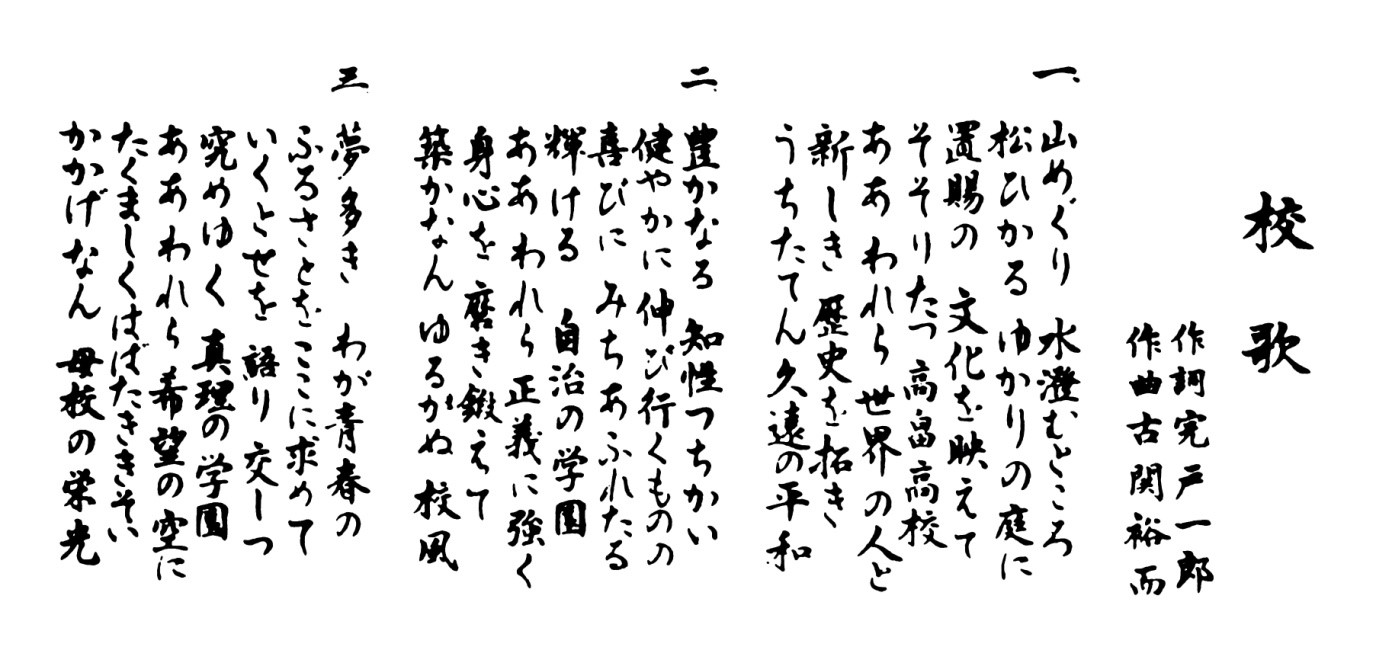 校歌
作詞 完戸一郎
作曲 古関裕而
一、
山めぐり 水澄むところ
松ひかる ゆかりの庭に
置賜の 文化を映えて
そそりたつ 高畠高校
ああ われら 世界の人と
新しき 歴史を拓き
うちたてん 久遠の平和
二、
豊かなる 知性つちかい
健やかに 伸び行くものの
喜びに みちあふれたる
輝ける 自治の学園
ああ われら 正義に強く
身心を 磨き鍛えて
築かなん ゆるがぬ校風
三、
夢多き わが青春の
ふるさとを ここに求めて
いくとせを 語り交しつ
究めゆく 真理の学園
ああ われら 希望の空に
たくましく はばたききそい
かかげなん 母校の栄光